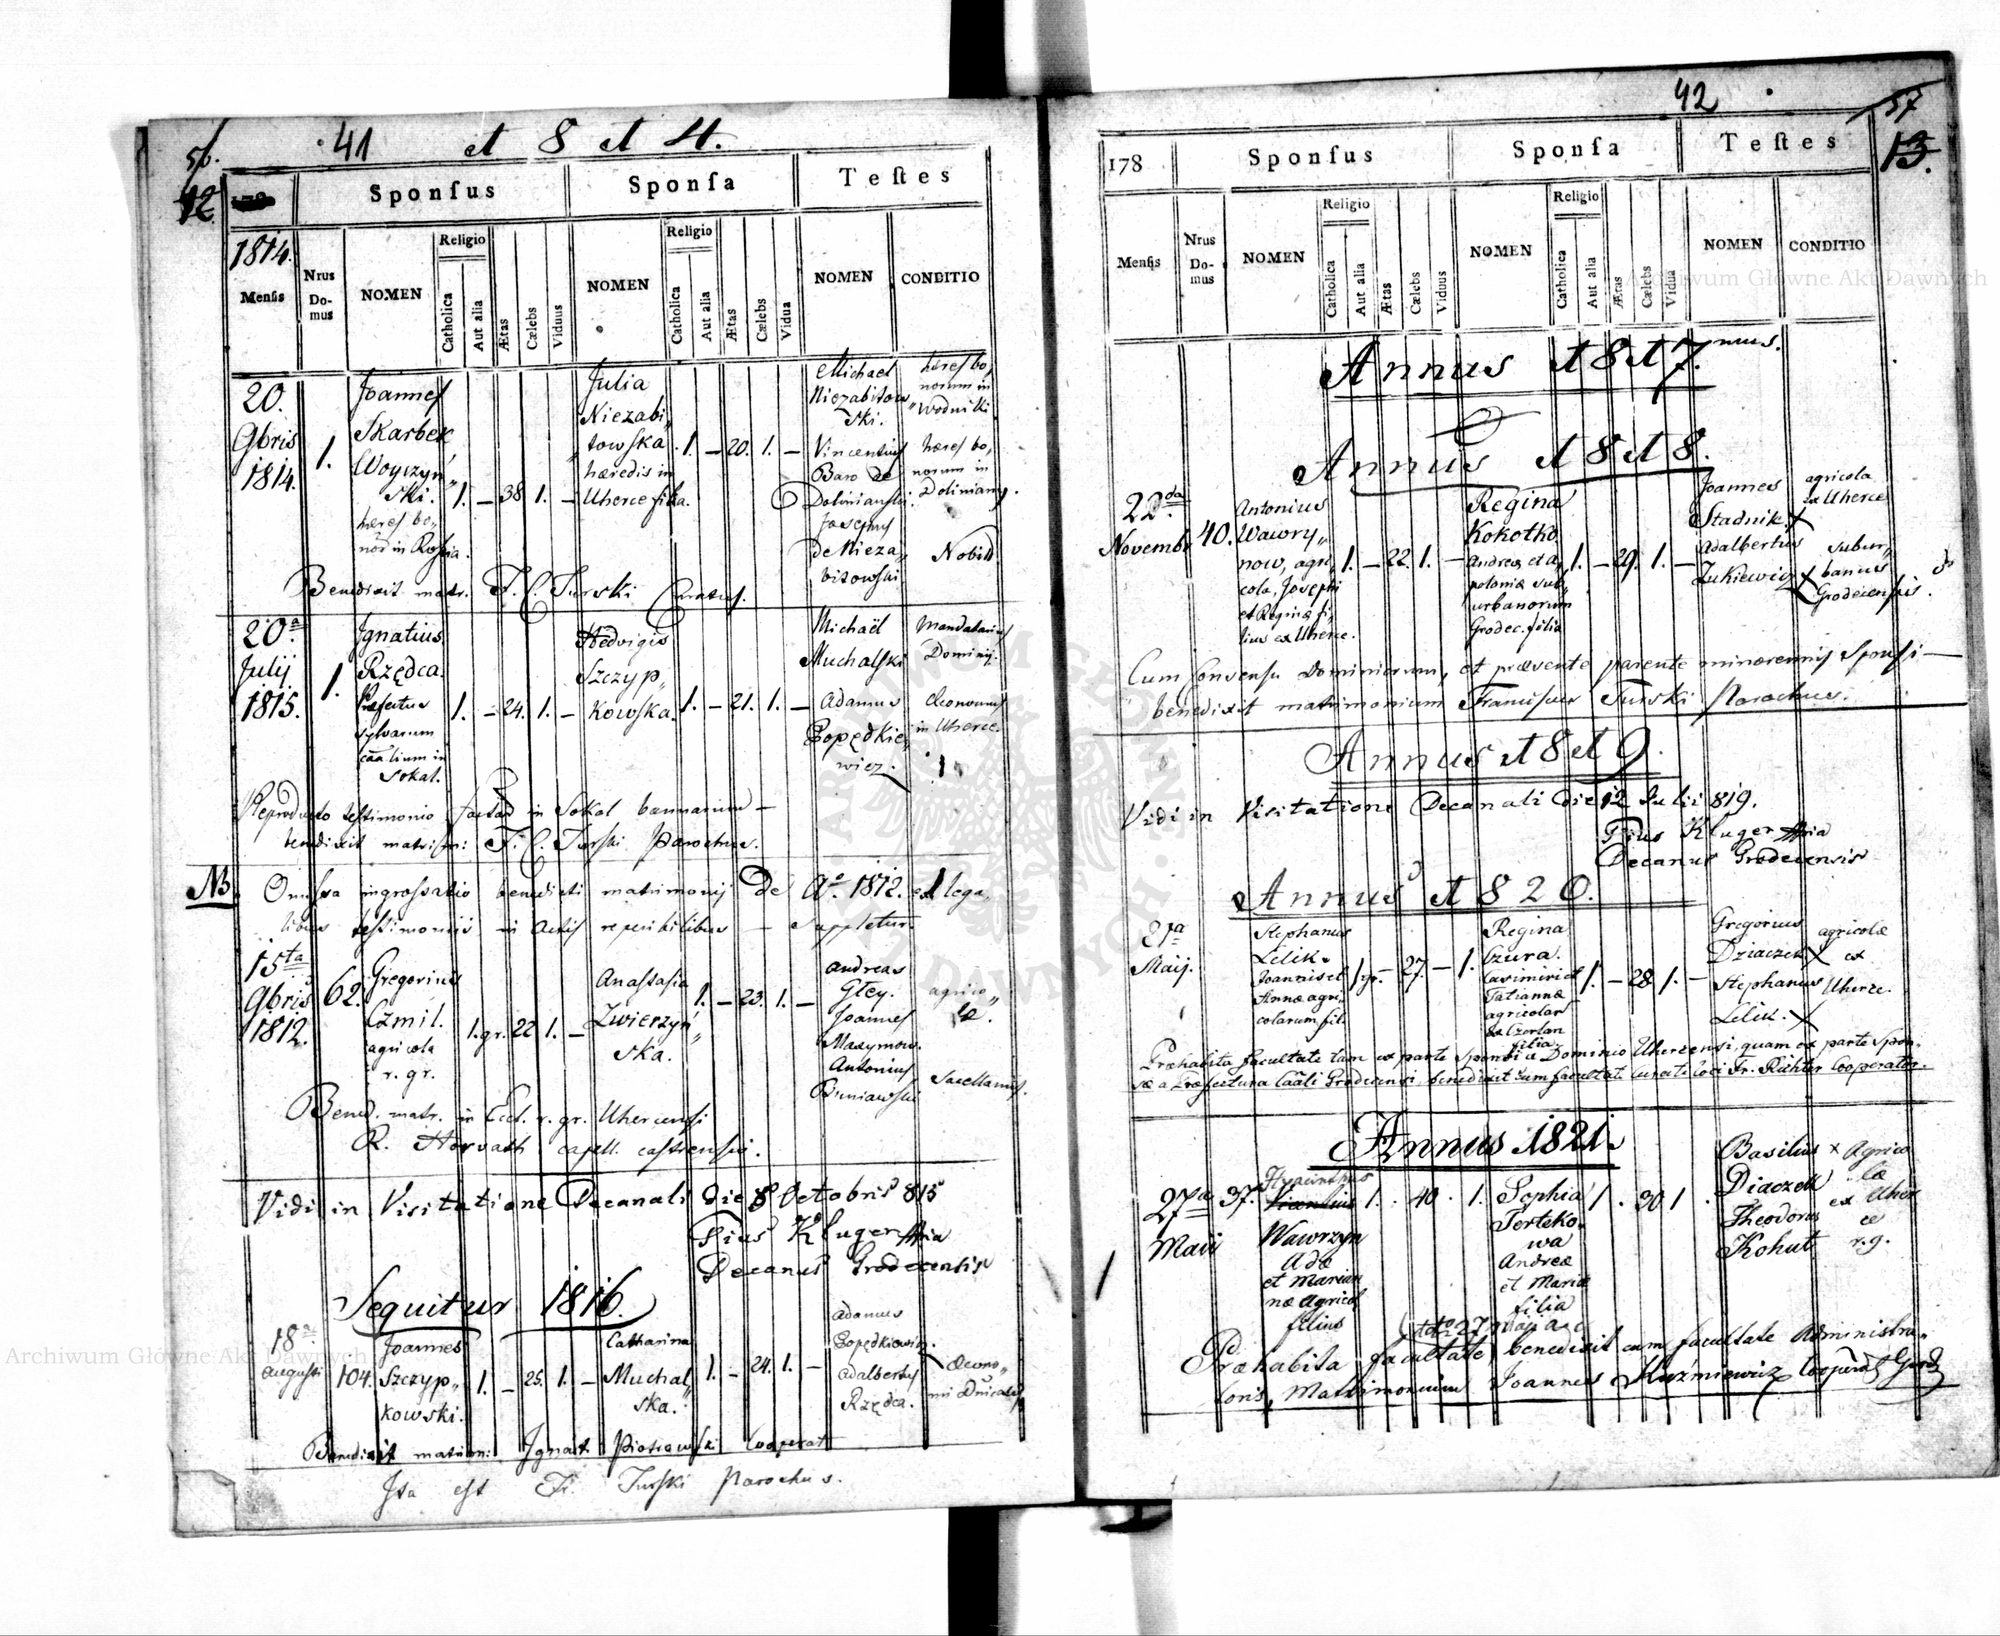 56.
41
1814.
12.
Sponſus
Sponſa
Teſtes
1814.
Menſis
Nrus Do-mus
NOMEN
Religio
Catholica
Aut alia
Ætas
Cælebs
Viduus
NOMEN
Religio
Catholica
Aut alia
Ætas
Cælebs
Vidua
NOMEN
CONDITIO
20.
9bris
1814.
1.
Joannes
Skarbek
Woyczyń„
ski.
hæres bo„
1. – 38. 1. –
Julia
Niezabi„
towska
hæredis in
Uherce filia.
1. – 20. 1. –
Michael
Niezabitow
ski.
Vincentius
Baro de
Doliniański.
Josephus
de Nieza„
bitowski
hæres bo„
norum in
hæres bo„
norum in
Doliniany.
Nobilis
Benedixit matr. F. C. Turski Curatus.
20ª
Julij
1815.
1.
Ignatius
Rzędca.
Præfectus
sylvarum
in
Sokal.
1. – 24. 1. –
Hedvigis
Szczyp„
kowska.
1. – 21. 1. –
Michaël
Muchalski
Adamus
Popędkie„
wicz.
Mandatarius
Dominij.
Œconomus
in Uherce.
Reproducto testimonio in Sokal bannorum –
benedixit matrim: F. C. Turski Parochus.
NB.
Omissa ingrossatio benedicti matrimonij de Aº 1812. ex lega„
libus testimoniis in Actis reperibilibus – suppletur.
15ta
9bris
1812.
62.
Gregorius
Czmil.
agricola
r. gr.
1. gr. 22 1. –
Anastasia
Zwierzyń„
ska.
1. – 23. 1. –
Andreas
Głey.
Joannes
Maxymow.
Antonius
agrico„
læ.
Sacellanus.
Bened. matr. in Eccl. r. gr. Uhercensi
R. Horvath capell. castrensis.
Vidi in Visitatione Decanali die 8 Octobris 815
Pius Kluger
Decanus Grodecensis
Sequitur 1816.
18
Augusti
104.
Joannes
Szczyp„
kowski.
1. – 25. 1. –
Catharina
Muchal„
ska.
1. – 24. 1. –
Adamus
Popędkiewicz.
Adalbertus
Rzędca.
Œcono„
mi
Benedixit matrim: Ignat. Piotrowski Cooperat
Ita est Fr. Turski Parochus.
42
57
13.
178
Sponſus
Sponſa
Teſtes
Menſis
Nrus Do-mus
NOMEN
Religio
Catholica
Aut alia
Ætas
Cælebs
Viduus
NOMEN
Religio
Catholica
Aut alia
Ætas
Cælebs
Vidua
NOMEN
CONDITIO
Annus 1817.mus.
Annus 1818.
22da
Novembr
40.
Antonius
Wawry„
now, agri„
cola, Josephi
et Reginæ fi„
lius ex Uherce.
1. – 22. 1. –
Regina
Kokotko
Andreæ et A„
poloniæ sub„
urbanorum
Grodec. filia
1. – 29. 1. –
Joannes
Stadnik. X
Adalbertus
Zukiewicz X
agricola
ex Uherce
subur„
banus
Grodecensis.
Cum Consensu Dominiorum, et præsente parente minorennis sponsi –
benedixit matrimonium Franciscus Turski Parochus.
Annus 1819.
Vidi in Visitatione Decanali die 12 Julii 819.
Pius Kluger
Decanus Grodecensis
Annus 1820.
21ª
Maij.
Stephanus
Lelik.
Joannis et
Annæ agri„
colarum fil.
1 gr. – 27. – 1.
Regina
Czura.
Casimiri et
Tatiannæ
agricolar
ex Czerlan
filia
1. – 28 1. –
Gregorius
Dziaczek X
Stephanus
Lelik. X
agricolæ
ex
Uherce.
Præhabita facultate tam ex parte Sponsi a Dominio Uhercensi, quam ex parte Spon„
sæ a Præfectura Caãli Grodecensi, benedixit cum facultate Curati loci Fr. Richter Cooperator.
Annus 1821.
27ª
Maii
37.
Hyacinthus
Wawrzyn
Adæ
et Marian
næ Agricol
filius
1. 40. 1.
Sophia
Terteko„
wa
Andreæ
et Mariæ
filia
1. 30 1.
Basilius X
Diaczek
Theodorus
Kohut
Agrico
læ
ex Uher
ce
r. g.
Præhabita facultate, benedixit cum facultate Administra„
toris, Matrimonium Joannes Kuźniewicz
Archiwum Główne Akt Dawnych
Archiwum Główne Akt Dawnych
ARCHIWUM GŁÓWNE AKT DAWNYCH